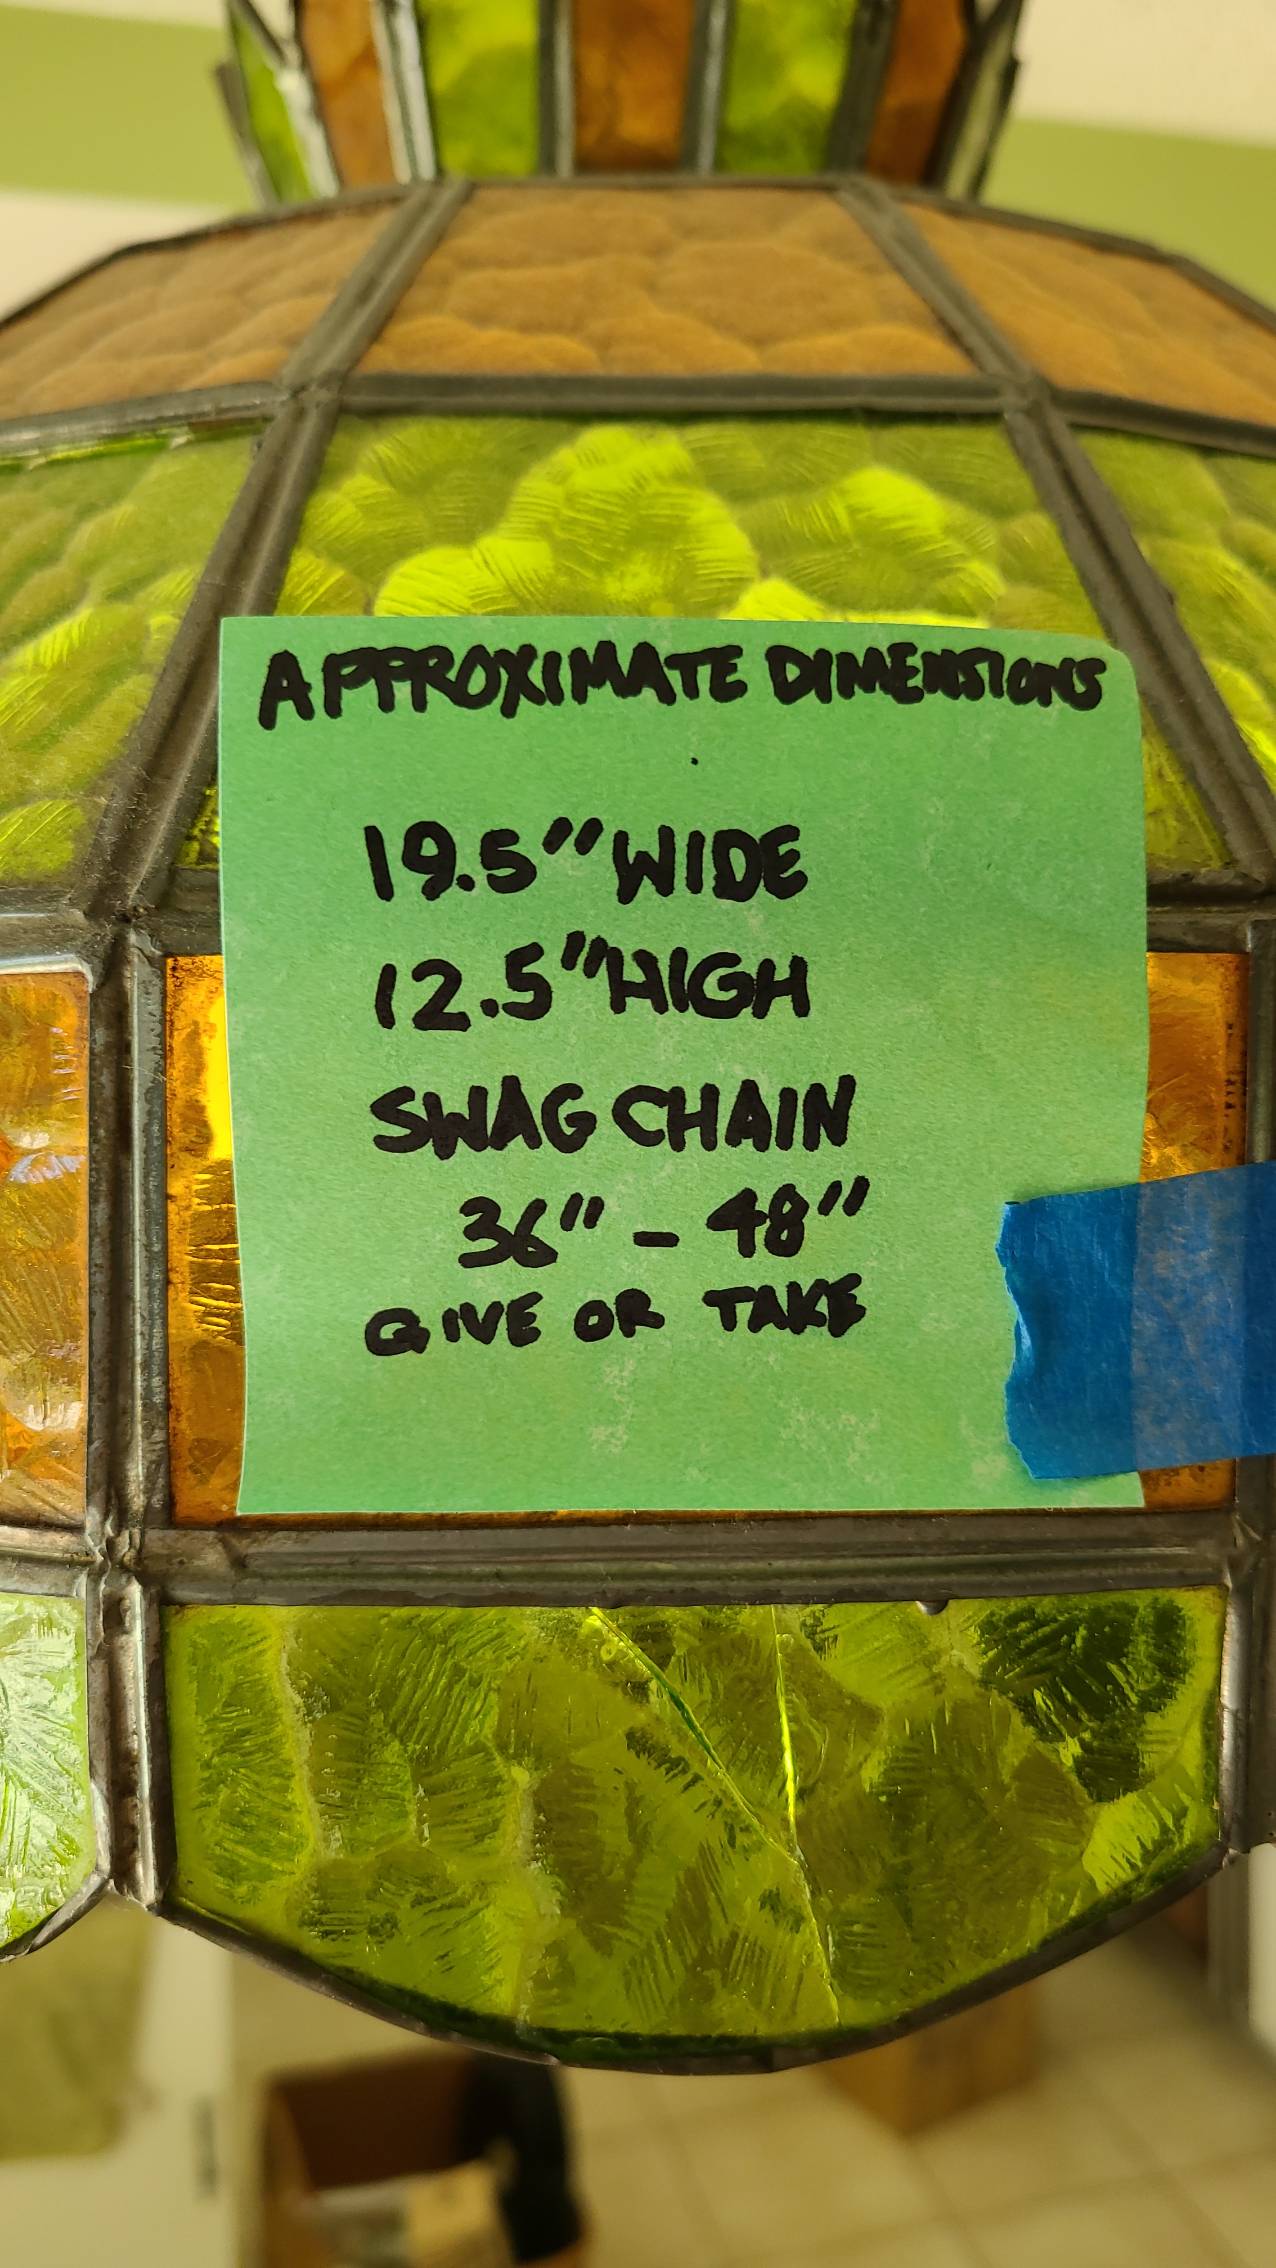 APPROXIMATE DIMENSIONS
19.5" WIDE
12.5" HIGH
SWAG CHAIN
36" - 48"
GIVE OR TAKE